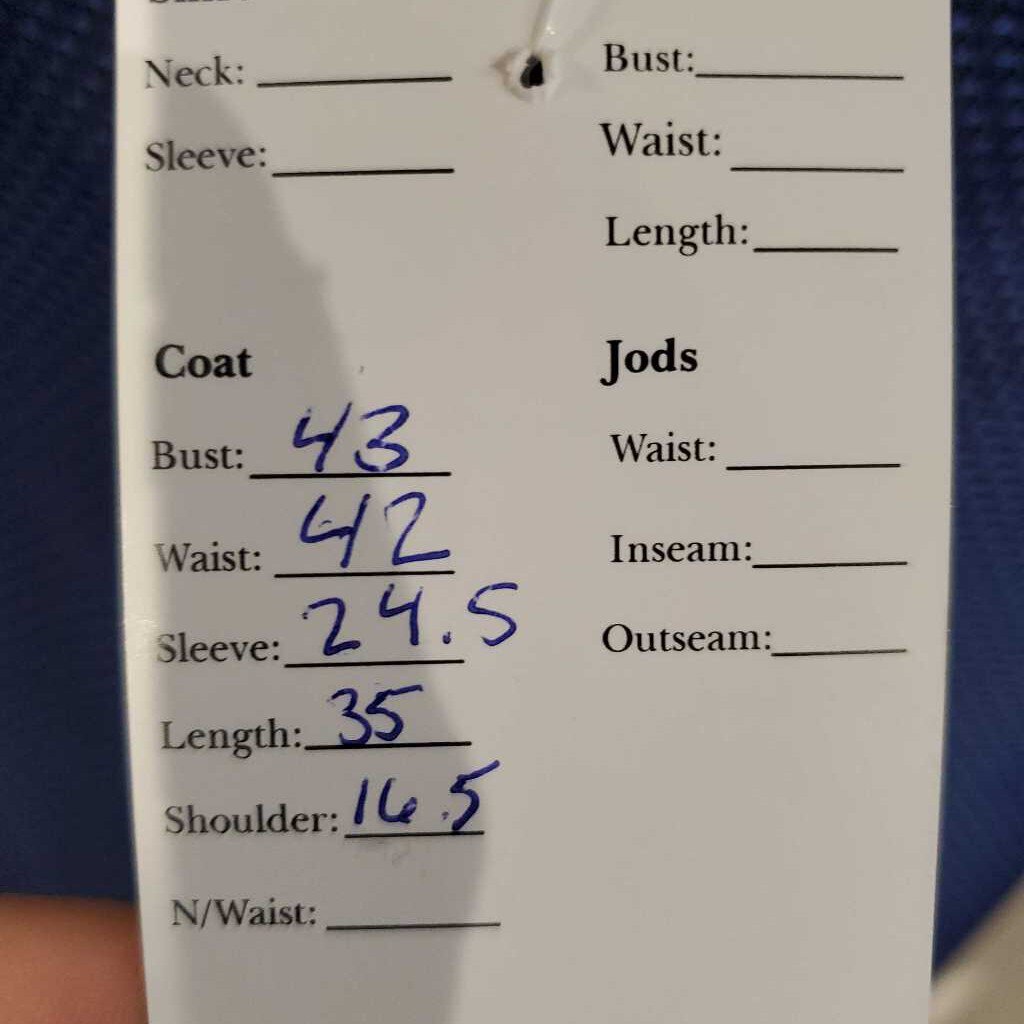 Neck:
Sleeve:
Bust:
Waist:
Length:
Coat
Bust: 43
Waist: 42
Sleeve: 24.5
Length: 35
Shoulder: 16.5
N/Waist:
Jods
Waist:
Inseam:
Outseam: